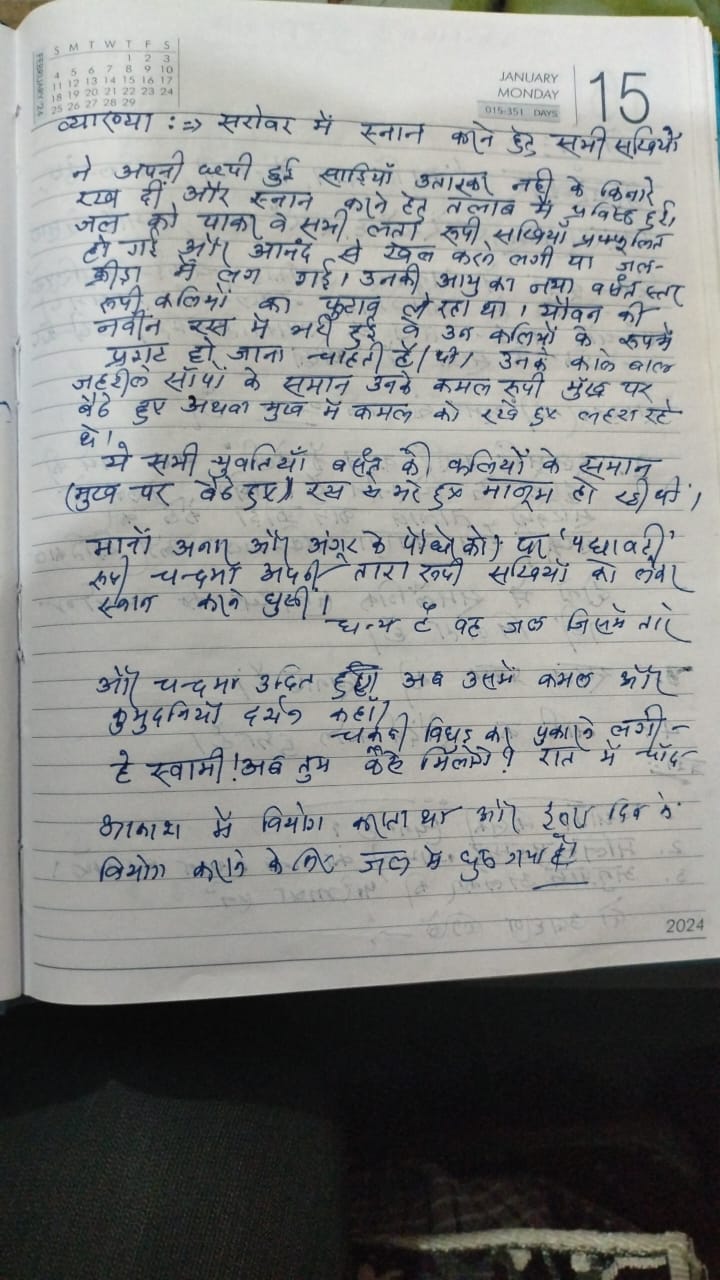 FEBRUARY '24
S M T W T F S
1 2 3
4 5 6 7 8 9 10
11 12 13 14 15 16 17
18 19 20 21 22 23 24
25 26 27 28 29
JANUARY
MONDAY
015-351 DAYS
15
व्याख्या :⇒ सरोवर में स्नान करने हेतु सभी सखियों
ने अपनी छपी हुई साड़ियाँ उतारकर नदी के किनारे
रख दीं और स्नान करने हेतु तलाब में प्रविष्ट हुई।
जल को पाकर वे सभी लता रूपी सखियाँ प्रफ्फुलित
हो गई और आनंद से खेल करने लगी या जल-
क्रीड़ा में लग गई। उनकी आयु का नया वसंत स्तर
रूपी कलियों का फुटाव ले रहा था। यौवन की
नवीन रस में भरी हुई वे उन कलियों के रूपमें
प्रगट हो जाना चाहती हैं(थी)। उनके काले बाल
जहरीले साँपों के समान उनके कमल रूपी मुख पर
बैठे हुए अथवा मुख में कमल को रखे हुए लहरा रहे
थे।
ये सभी युवतियाँ वसंत की कलियों के समान
(मुख पर बैठे हुए) रस से भरे हुए मालूम हो रही थीं।
मानों अनार और अंगूर के पौधे को) पर 'पद्मावती'
रूपी चन्दमाँ अपनी तारा रूपी सखियों को लेकर
स्नान करने घुसी।
धन्य है वह जल जिसमें तारे
और चन्दमा उदित हुए। अब उसमें कमल और
कुमुदनियाँ दर्शन कहाँ।
चकवी बिछुड़ कर पुकारने लगी-
हे स्वामी! अब तुम कैसे मिलोगे? रात में चाँद
आकाश में वियोग कराता था और दिन के
वियोग कराने के लिए जल में घुस गया है।
2024